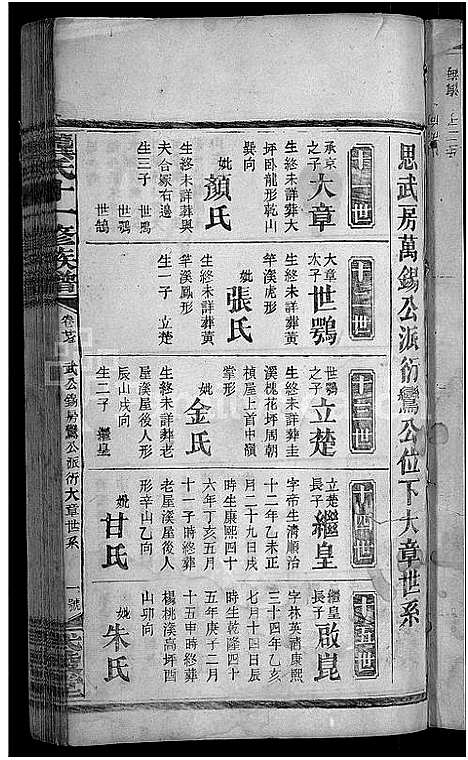 思武房萬錫公派衍鸞公位下大章世系
十一世
承京之子
大章
生終未詳葬大
坪卧龍形乾山
巽向
妣
顏氏
生終未詳葬與
夫合冢右邊
生三子 世鶚
世鴞
世鵠
十二世
大章太子
世鶚
生終未詳葬黃
竿溪虎形
妣
張氏
生終未詳葬黃
竿溪鳳形
生一子 立楚
十三世
世鶚之子
立楚
生終未詳葬圭
溪槐花坪周朝
楨屋上首中嶺
掌形
妣
金氏
生終未詳葬老
屋漢屋後人形
辰山戌向
生二子 繼皇
十四世
立楚長子
繼皇
字帝生清順治
十二年乙未正
月二十九日戌
時生康熙四十
六年丁亥五月
十一子時終葬
老屋漢屋後人
形辛山乙向
妣
甘氏
十五世
繼皇長子
啟崑
字林英清康熙
三十四年乙亥
七月十四日辰
時生乾隆四十
五年庚子二月
十五申時終葬
楊桃漢高坪酉
山卯向
妣
朱氏
氏十一修族譜
武公錫房鸞公派衍大章世系
一號